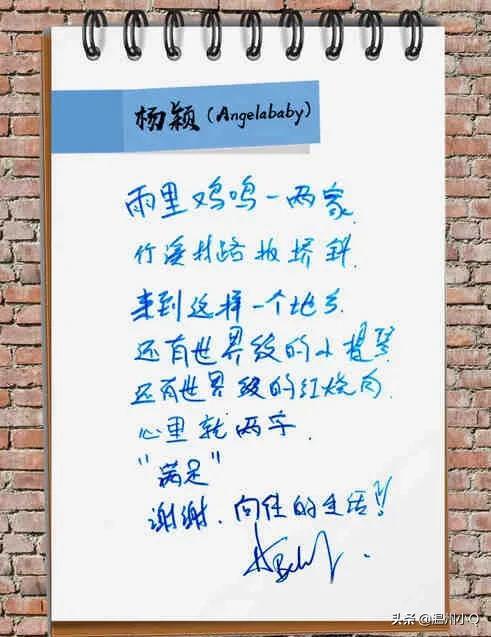 杨颖（Angelababy）
雨里鸡鸣一两家
竹溪村路板桥斜.
来到这样一个地方.
还有世界级的小提琴
还有世界级的红烧肉.
心里就两字.
"满足"
谢谢.向往的生活!!
头条 @温州小Q